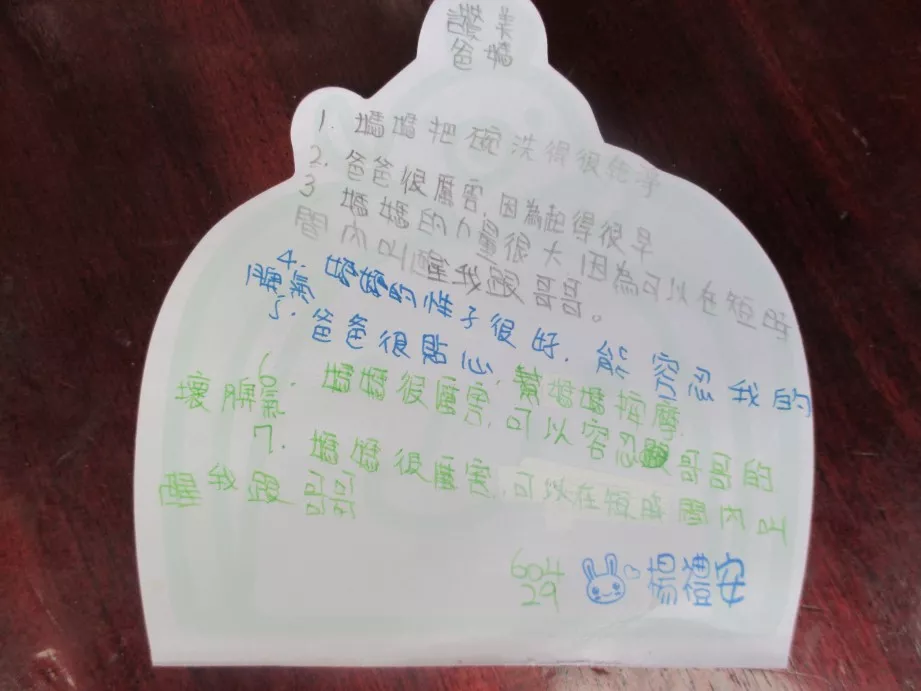 讚美
爸媽
1. 媽媽把碗洗得很乾淨
2. 爸爸很厲害,因為起得很早
3 媽媽的力量很大因為可以在短時
間內叫醒我跟哥哥。
4. 媽媽的性子很好,能容忍我的
脾氣
5. 爸爸很貼心,幫媽媽按摩,
6. 媽媽很厲害,可以容忍哥哥的
壞脾氣
7. 媽媽很厲害,可以在短時間內叫
我跟哥哥
604
29
楊禮安